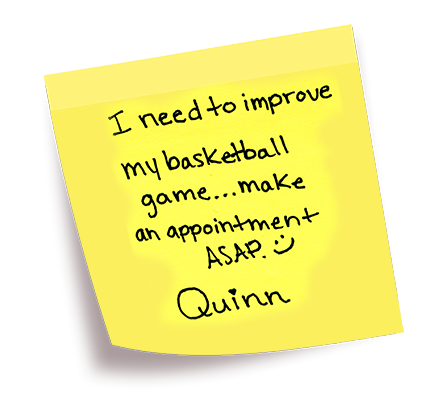 I need to improve
my basketball
game...make
an appointment
ASAP. :)
Quinn